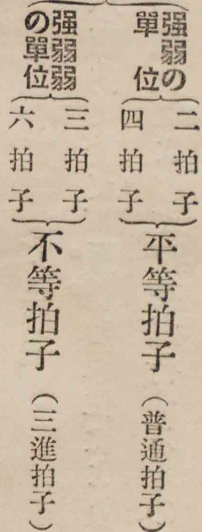 强弱の
單位
二拍子
四拍子
平等拍子（普通拍子）
强弱弱
の單位
三拍子
六拍子
不等拍子（三進拍子）